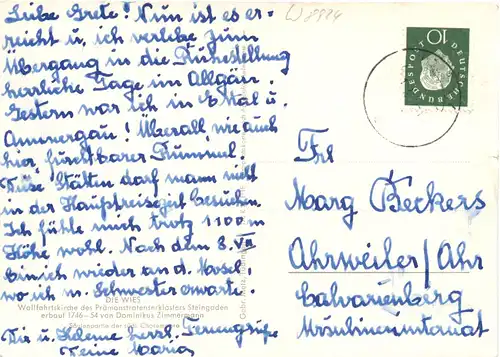 Liebe Grete! Nun ist es er-
reicht u. ich verlebe zum
Übergang in die Ruhestellung
herrliche Tage im Allgäu.
Gestern war ich in Ettal u.
Ammergau! Überall wie auch
hier, furchtbarer Rummel!
Diese Stätten darf mann nicht
in der Hauptreisezeit besuchen.
Ich fühle mich trotz 1100 m
Höhe wohl. Nach dem 8. VII
bin ich wieder an d. Mosel
wo ich m. Schwester erwarte.
Dir u. Helene herzl. Feriengrüße
Deine Maria
DIE WIES
Wallfahrtskirche des Prämonstratenserklosters Steingaden
erbaut 1746–54 von Dominikus Zimmermann
10
DEUTSCHE BUNDESPOST
Frl
Marg Beckers
Ahrweiler/Ahr
Calvarienberg
Ursulineninternat